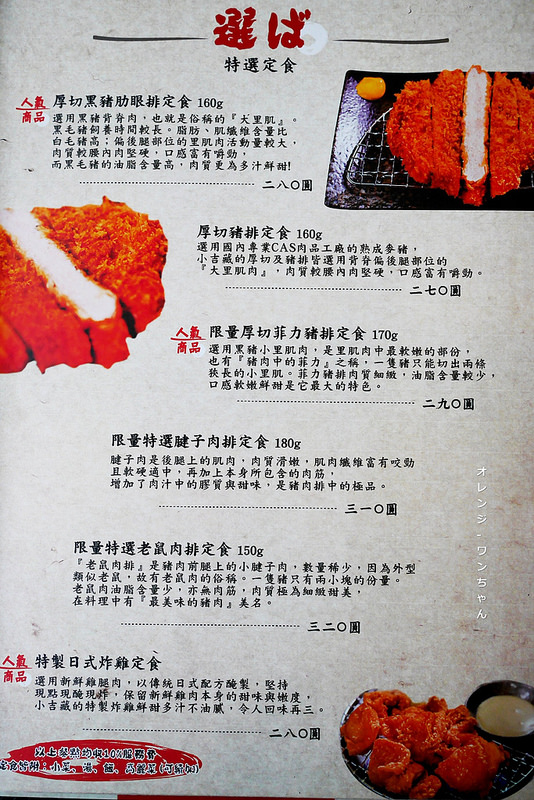 選ば
特選定食
人氣
商品
厚切黑豬肋眼排定食 160g
選用黑豬背脊肉，也就是俗稱的『大里肌』。
黑毛豬飼養時間較長。脂肪、肌纖維含量比
白毛豬高；偏後腿部位的里肌肉活動量較大，
肉質較腰內肉堅硬，口感富有嚼勁，
而黑毛豬的油脂含量高，肉質更為多汁鮮甜！
二八〇圓
厚切豬排定食 160g
選用國內專業CAS肉品工廠的熟成麥豬，
小吉藏的厚切及豬排皆選用背脊偏後腿部位的
『大里肌肉』，肉質較腰內肉堅硬，口感富有嚼勁。
二七〇圓
人氣
商品
限量厚切菲力豬排定食 170g
選用黑豬小里肌肉，是里肌肉中最軟嫩的部份，
也有『豬肉中的菲力』之稱，一隻豬只能切出兩條
狹長的小里肌。菲力豬排肉質細緻，油脂含量較少，
口感軟嫩鮮甜是它最大的特色。
二九〇圓
限量特選腱子肉排定食 180g
腱子肉是後腿上的肌肉，肉質滑嫩，肌肉纖維富有咬勁
且軟硬適中，再加上本身所包含的肉筋，
增加了肉汁中的膠質與甜味，是豬肉排中的極品。
三一〇圓
限量特選老鼠肉排定食 150g
『老鼠肉排』是豬肉前腿上的小腱子肉，數量稀少，因為外型
類似老鼠，故有老鼠肉的俗稱。一隻豬只有兩小塊的份量。
老鼠肉油脂含量少，亦無肉筋，肉質極為細緻甜美，
在料理中有『最美味的豬肉』美名。
三二〇圓
人氣
商品
特製日式炸雞定食
選用新鮮雞腿肉，以傳統日式配方醃製，堅持
現點現醃現炸，保留新鮮雞肉本身的甜味與嫩度，
小吉藏的特製炸雞鮮甜多汁不油膩，令人回味再三。
二八〇圓
以上餐點均收10%服務費
定食皆附：小菜、湯、飯、高麗菜(可續加)
オレンジ-ワンちゃん